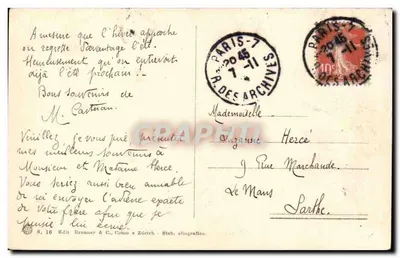 A mesure que l'hiver approche
on regrette davantage l'été.
Heureusement qu'on entrevoit
déjà l'été prochain!
Bons souvenirs de
M.
Veuillez je vous prie présenter
mes meilleurs souvenirs à
Monsieur et Madame Hercé.
Vous seriez aussi bien aimable
de m'envoyer l'adresse exacte
de votre frère afin que je
puisse lui écrire.
PARIS-7
20 45
7-11
R. DES ARCHIVES
PARIS-7
20 45
-11
R. DES ARCHIVES
10c
Mademoiselle
Suzanne Hercé
9 Rue Marchande
Le Mans
Sarthe
Cparama
& C., Como & Zürich.